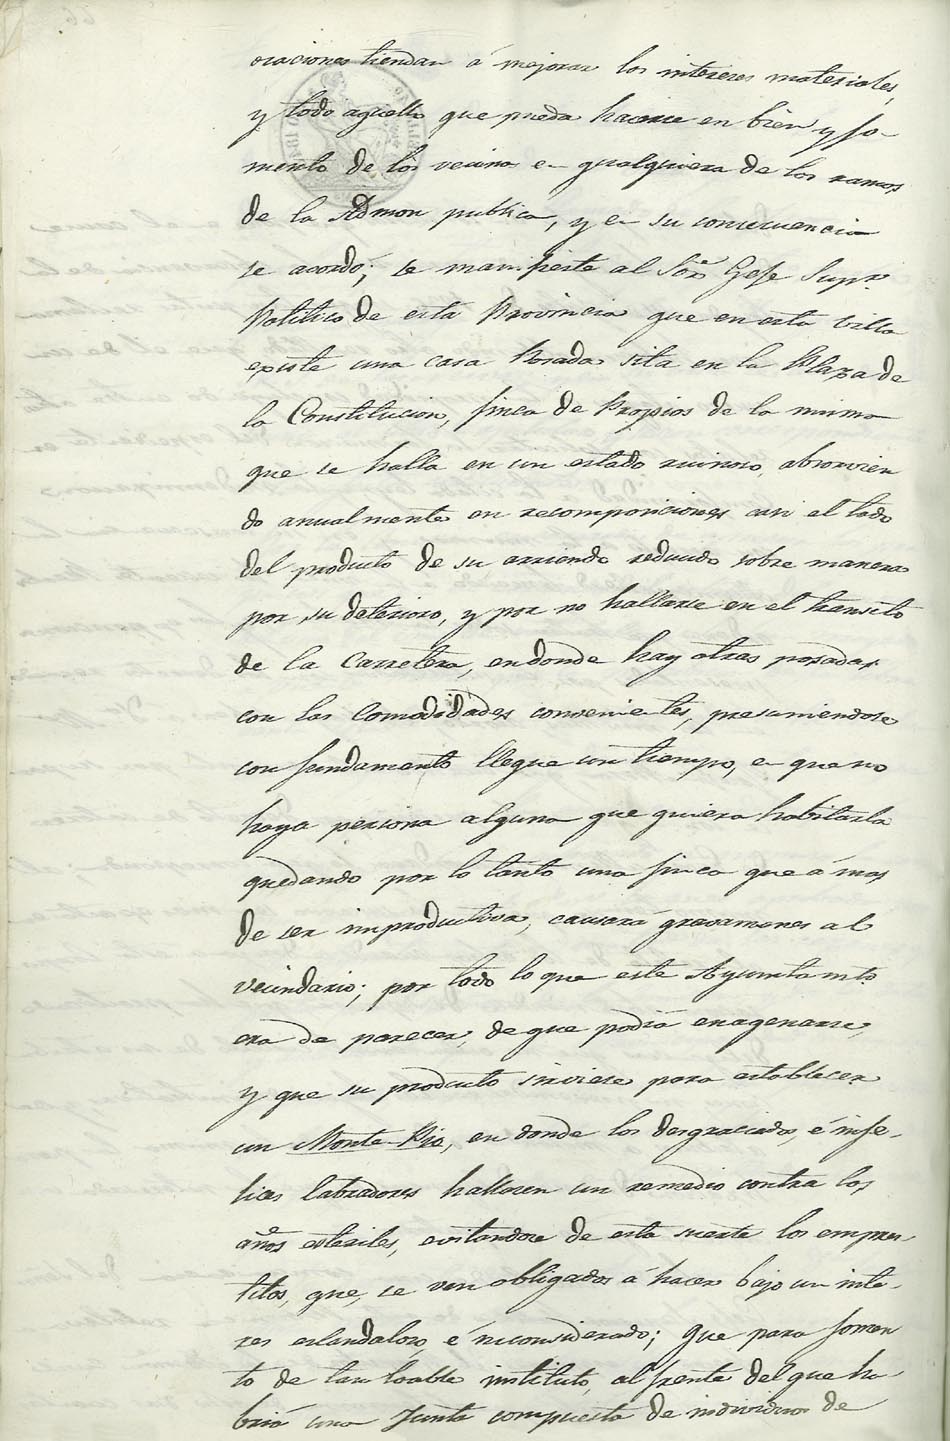 oraciones tiendan á mejorar los intereses materiales,
y todo aquello que pueda hacerse en bien y fo-
mento de los vecinos en qualquiera de los ramos
de la Admon publica, y en su consecuencia
se acordó; se manifieste al Sor. Gefe Supr.
Politico de esta Provincia que en esta Villa
existe una casa Posada sita en la Plaza de
la Constitucion, finca de Propios de la misma
que se halla en un estado ruinoso, absorvien
do anualmente en recomposiciones casi el todo
del producto de su arriendo reducido sobre manera
por su deterioro, y por no hallarse en el transito
de la Carretera, en donde hay otras posadas
con las Comodidades convenientes, presumiendose
con fundamento llegue un tiempo, en que no
haya persona alguna que quiera habitarla
quedando por lo tanto una finca que á mas
de ser improductiva, causará gravamenes al
vecindario; por todo lo que este Ayuntamto.
era de parecer, de que podia enagenarse,
y que su producto sirviese para establecer
un Monte-Pio, en donde los desgraciados, é infe-
lices labradores hallasen un remedio contra los
años esteriles, evitandose de esta suerte los empres-
titos, que, se ven obligados á hacer bajo un inte-
res eslandaloso, é inconsiderado; Que para fomen
to de tan loable instituto, al frente del que ha
bria una Junta compuesta de individuos de